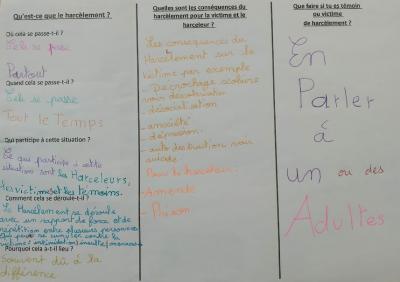 Qu'est-ce que le harcèlement ?
Où cela se passe-t-il ?
Cela se passe
Partout
Quand cela se passe-t-il ?
Cela se passe
Tout le Temps
Qui participe à cette situation ?
Ce qui participe à cette
situations sont les Harceleurs,
les victimes et les témoins.
Comment cela se déroule-t-il ?
Le Harcèlement se déroule
avec un rapport de force et de
répétition entre plusieurs personnes
qui peut se cumuler contre la
victime: intimidation/insulte/menaces
Pourquoi cela a-t-il lieu ?
Souvent dû à la
différence
Quelles sont les conséquences du
harcèlement pour la victime et le
harceleur ?
Les conséquences du
Harcèlement sur la
victime par exemple
- Décrochage scolaire
voir déscolarisation
- désociabilisation
- anxiété
- dépression
- auto destruction voir
suicide.
- Pour le harceleur.
- Amende
- Prison
Que faire si tu es témoin
ou victime
de harcèlement ?
En
Parler
à
un ou des
Adultes